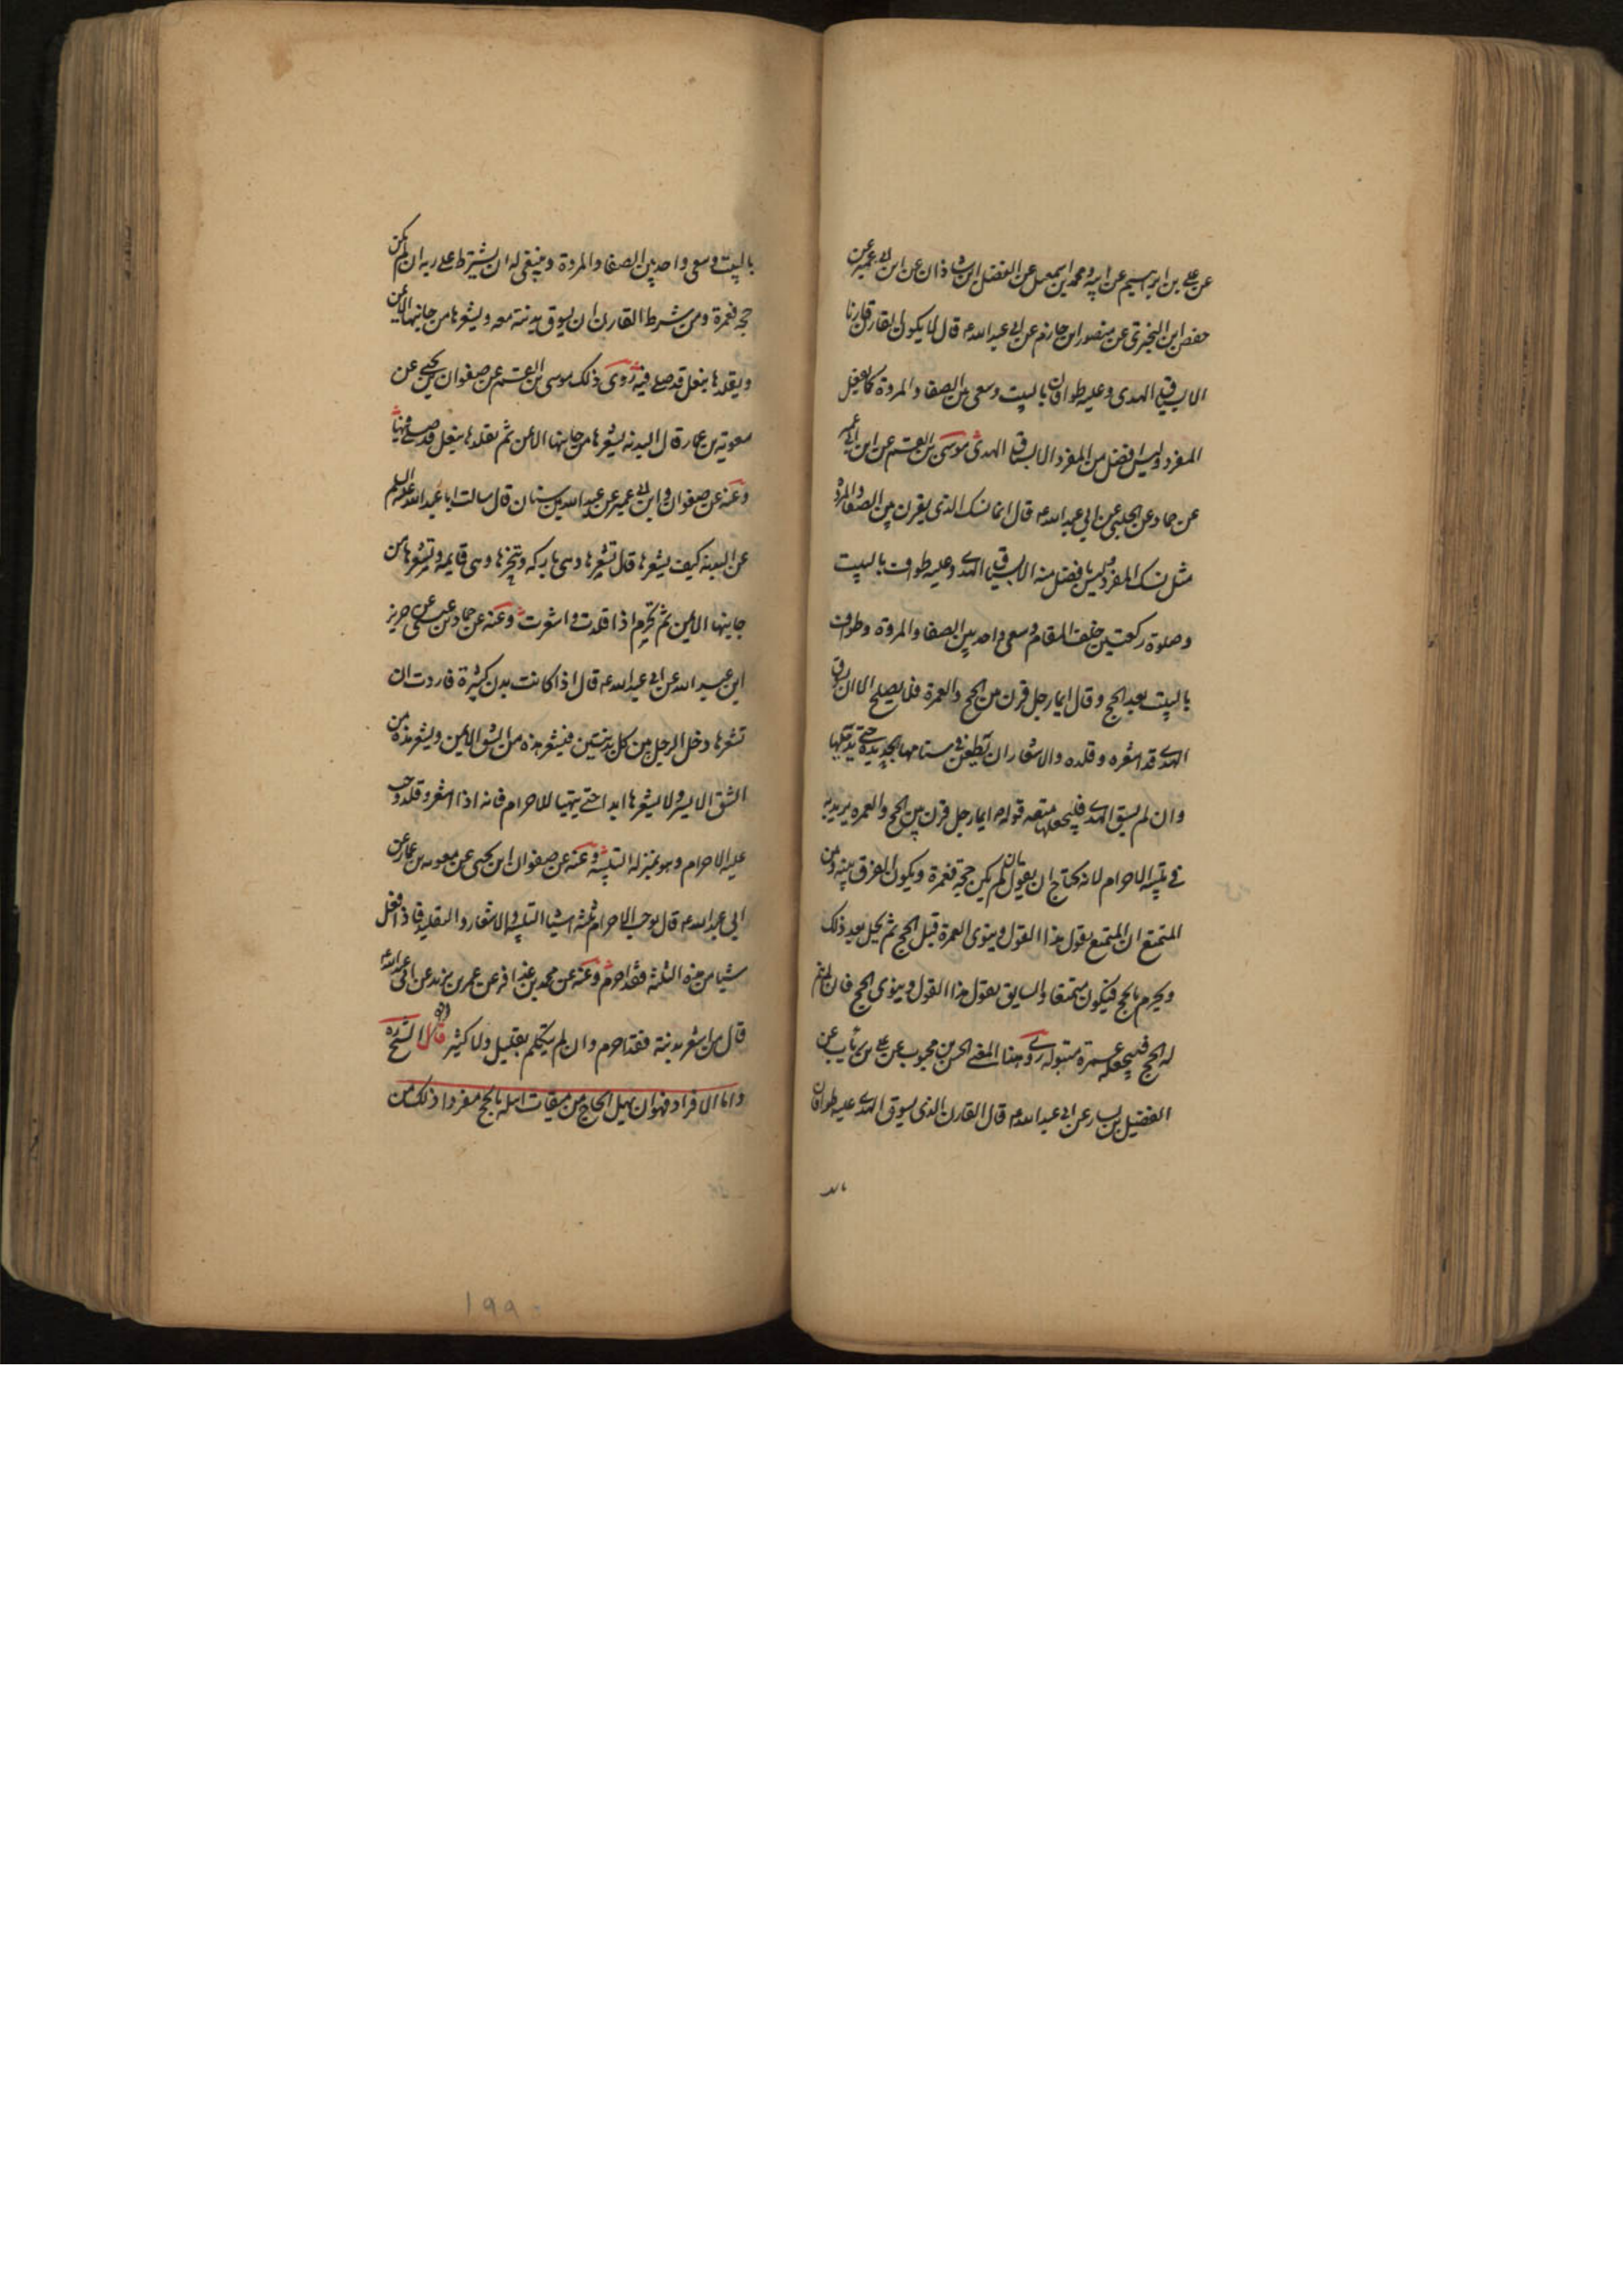 عن علي بن ابراهيم عن ابيه ومحمد ابن اسمعيل عن الفضل ابن شاذان عن ابن ابي عمير عن
حفص ابن البختري عن منصور ابن حازم عن ابي عبدالله ع قال لا يكون القارن قارنا
الا بسياق الهدى وعليه طوافان بالبيت وسعى بين الصفا والمروة كما يفعل
المفرد وليس افضل من المفرد الا بسياق الهدى موسى بن القسم عن ابن ابي عمير
عن حماد عن الحلبي عن ابي عبدالله ع قال انما نسك الذى يقرن بين الصفا والمروة
مثل نسك المفرد وليس بافضل منه الا بسياق الهدى وعليه طواف بالبيت
وصلوة ركعتين خلف المقام وسعى واحد بين الصفا والمروة وطواف
بالبيت بعد الحج وقال ايما رجل قرن بين الحج والعمرة فلا يصلح الا ان يسوق
الهدى قد اشعره وقلده والاشعار ان تطعن في سنامها بحديدة حتى تدميها
وان لم يسق الهدى فليجعلها متعه قوله ع ايما رجل قرن بين الحج والعمره يريد به
في تلبيه الاحرام لانه يحتاج ان يقول ان لم يكن حجة فعمرة ويكون الفرق بينه وبين
المتمتع ان المتمتع يقول هذا القول وينوى العمرة قبل الحج ثم يحل بعد ذلك
ويحرم بالحج فيكون متمتعا والسايق يقول هذا القول وينوى الحج فان لم يتم
له الحج فليجعله عمرة مبتولة روى هذا المعنى الحسن بن محبوب عن علي بن رئاب عن
الفضيل بن يسار عن ابي عبدالله ع قال القارن الذى يسوق الهدى عليه طوافان
بالبيت وسعى واحد بين الصفا والمروة وينبغى له ان يشترط على ربه ان لم يكن
حجه فعمرة ومن شرط القارن ان يسوق بدنة معه ويشعرها من جانبها الايمن
ويقلدها بنعل قد صلى فيه روى ذلك موسى بن القسم عن صفوان بن يحيى عن
معوية بن عمار قال البدنه يشعرها من جانبها الايمن ثم يقلدها بنعل قد صلى فيها
وعنه عن صفوان وابن ابي عمير عن عبدالله بن سنان قال سالت ابا عبدالله عليه السلم
عن البدنة كيف يشعرها قال تشعرها وهى باركه وتنحرها وهى قايمه وتشعرها من
جانبها الايمن ثم تحرم اذا قلدت واشعرت وعنه عن حماد بن عيسى عن حريز
ابن عبدالله عن ابي عبدالله ع قال اذا كانت بدن كثيرة فاردت ان
تشعرها دخل الرجل بين كل بدنتين فيشعر هذه من الشق الايمن ويشعر هذه من
الشق الايسر ولا يشعرها ابدا حتى يتهيا للاحرام فانه اذا اشعر وقلد وجب
عليه الاحرام وهو بمنزله التلبيه وعنه عن صفوان ابن يحيى عن معويه بن عمار عن
ابي عبدالله ع قال يوجب الاحرام ثلثه اشيا التلبيه والاشعار والتقليد فاذا فعل
شيا من هذه الثلثه فقد احرم وعنه عن محمد بن عذافر عن عمر بن يزيد عن ابي عبدالله
قال من اشعر بدنته فقد احرم وان لم يتكلم بقليل ولا كثير قال الشيخ ره
واما الافراد فهو ان يهل الحاج من ميقات اهله بالحج مفردا ذلك من